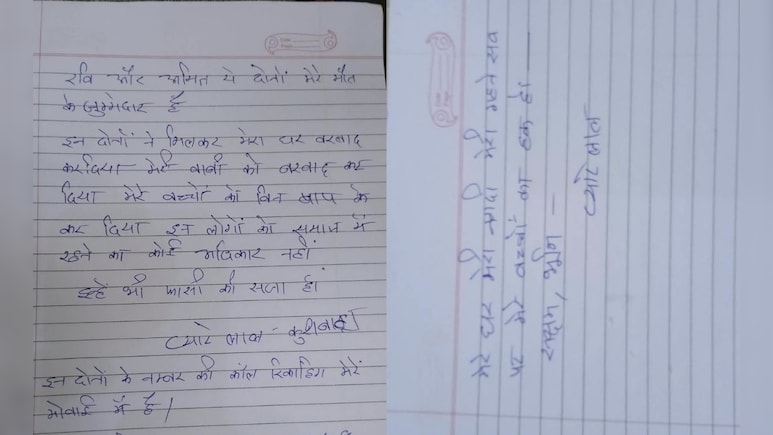 रवि और अमित ये दोनों मेरे मौत
के जुम्मेदार है
इन दोनों ने मिलकर मेरा घर बरबाद
करदिया मेरी बीबी को बरबाद कर
दिया मेरे बच्चों को बिन बाप के
कर दिया इन लोगों को समाज में
रहने का कोई अधिकार नहीं
इन्हें भी फासी की सजा हो
प्यारे लाल - कुशवाहा
इन दोनों के नम्बर की कॉल रिकाडिंग मेरे
मोबाई में है।
मेरे घर मेरी गाड़ी मेरी गहने सब
पर मेरे बच्चों का हक है।
प्यारे लाल